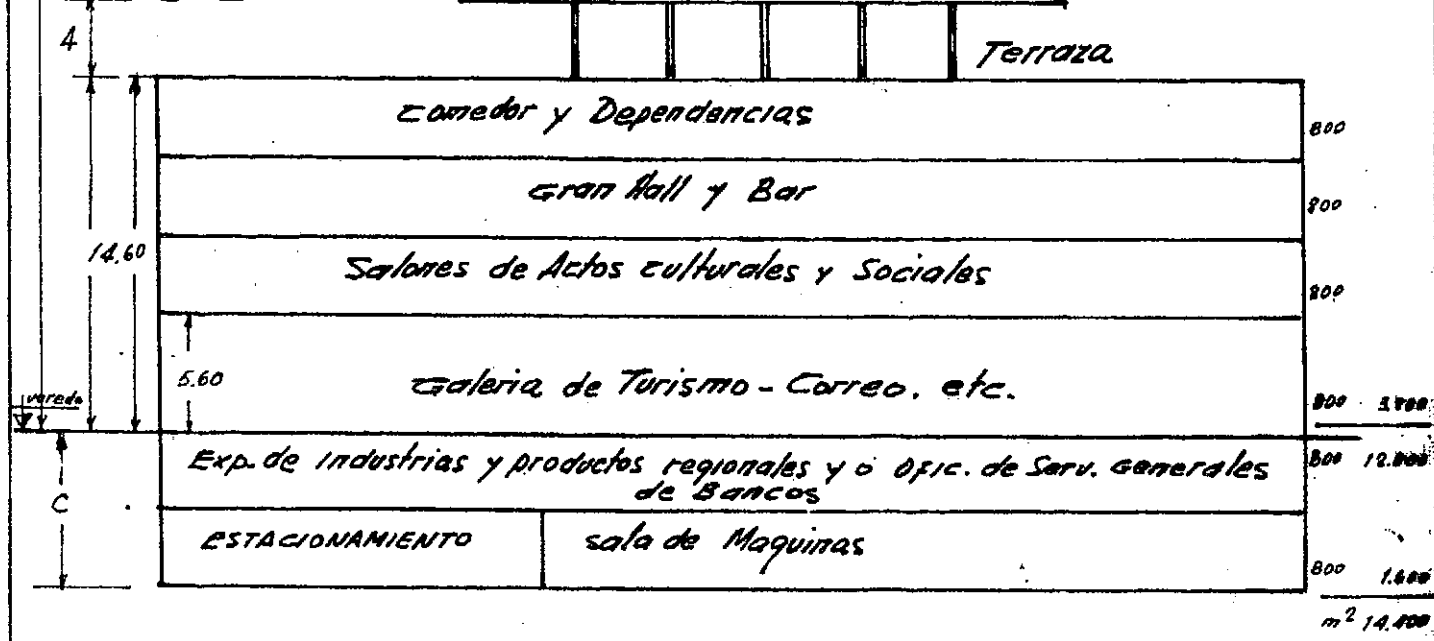 4
Terraza
Comedor y Dependencias
800
Gran Hall y Bar
800
14.60
Salones de Actos culturales y Sociales
800
5.60
Galeria de Turismo - Correo. etc.
800
vereda
Exp. de Industrias y productos regionales y ó Ofic. de Serv. Generales
800 12.800
de Bancos
C
ESTACIONAMIENTO
sala de Maquinas
800 1.600
m² 14.400